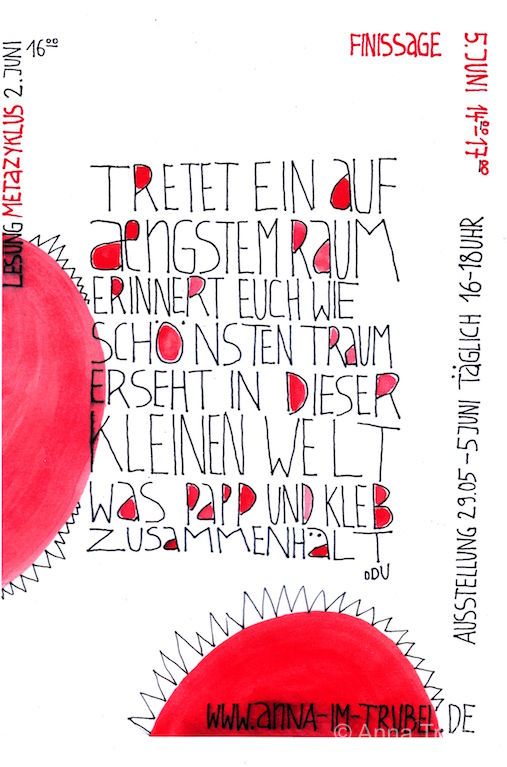 LESUNG METAZYKLUS 2. JUNI 16⁰⁰
FINISSAGE
5. JUNI 14⁰⁰-17⁰⁰
TRETET EIN AUF
AENGSTEM RAUM
ERINNERT EUCH WIE
SCHÖNSTEN TRAUM
ERSEHT IN DIESER
KLEINEN WELT
WAS PAPP UND KLEB
ZUSAMMENHÄLT
ODU
AUSSTELLUNG 29.05 – 5 JUNI TÄGLICH 16-18 UHR
WWW.ANNA-IM-TRUBEL.DE
© Anna